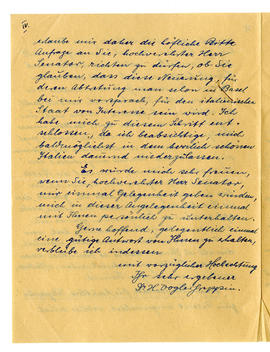 IV.
erlaube mir daher die höfliche Bitte
Anfrage an Sie, hochverehrter Herr
Senator, richten zu dürfen, ob Sie
glauben, dass diese Neuerung, für
deren man schon in Basel
bei mir vorsprach, für den italienischen
Staat von Interesse sein wird. Ich
habe mich zu diesem Schritt ent-
schlossen, da ich beabsichtige, mich
baldmöglichst in dem herrlich schönen
Italien dauernd niederzulassen.
Es würde mich sehr freuen,
wenn Sie, hochverehrter Herr Senator,
mir einmal Gelegenheit geben würden,
mich in dieser Angelegenheit einmal
mit Ihnen persönlich zu unterhalten.
Gerne hoffend, gelegentlich einmal
eine gütige Antwort von Ihnen zu erhalten,
verbleibe ich indessen
mit vorzüglicher Hochachtung
Ihr sehr ergebener
Dr. H. Vogler